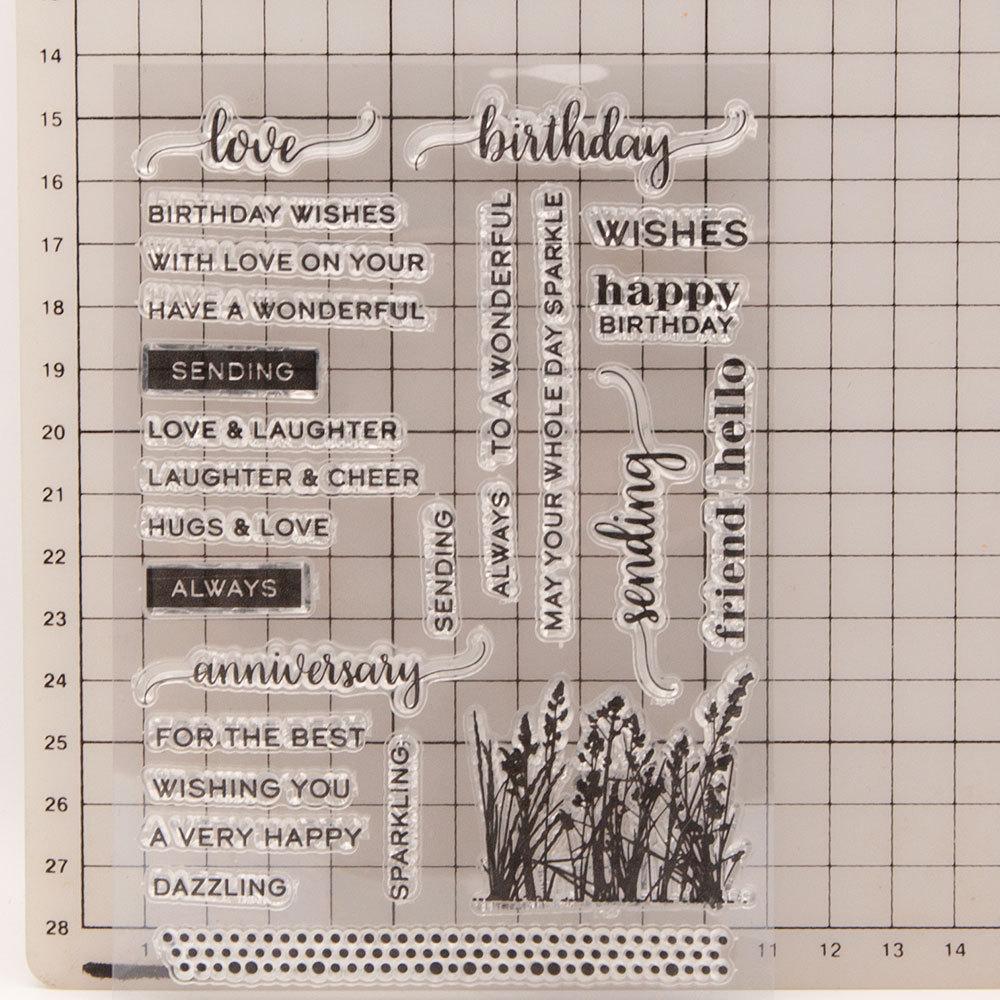 14
15
16
17
18
19
20
21
22
23
24
25
26
27
28
love
birthday
BIRTHDAY WISHES
WITH LOVE ON YOUR
HAVE A WONDERFUL
SENDING
LOVE & LAUGHTER
LAUGHTER & CHEER
HUGS & LOVE
ALWAYS
SENDING
ALWAYS
TO A WONDERFUL
MAY YOUR WHOLE DAY SPARKLE
WISHES
happy
BIRTHDAY
sending
hello
friend
anniversary
FOR THE BEST
WISHING YOU
A VERY HAPPY
DAZZLING
SPARKLING
1
11
12
13
14